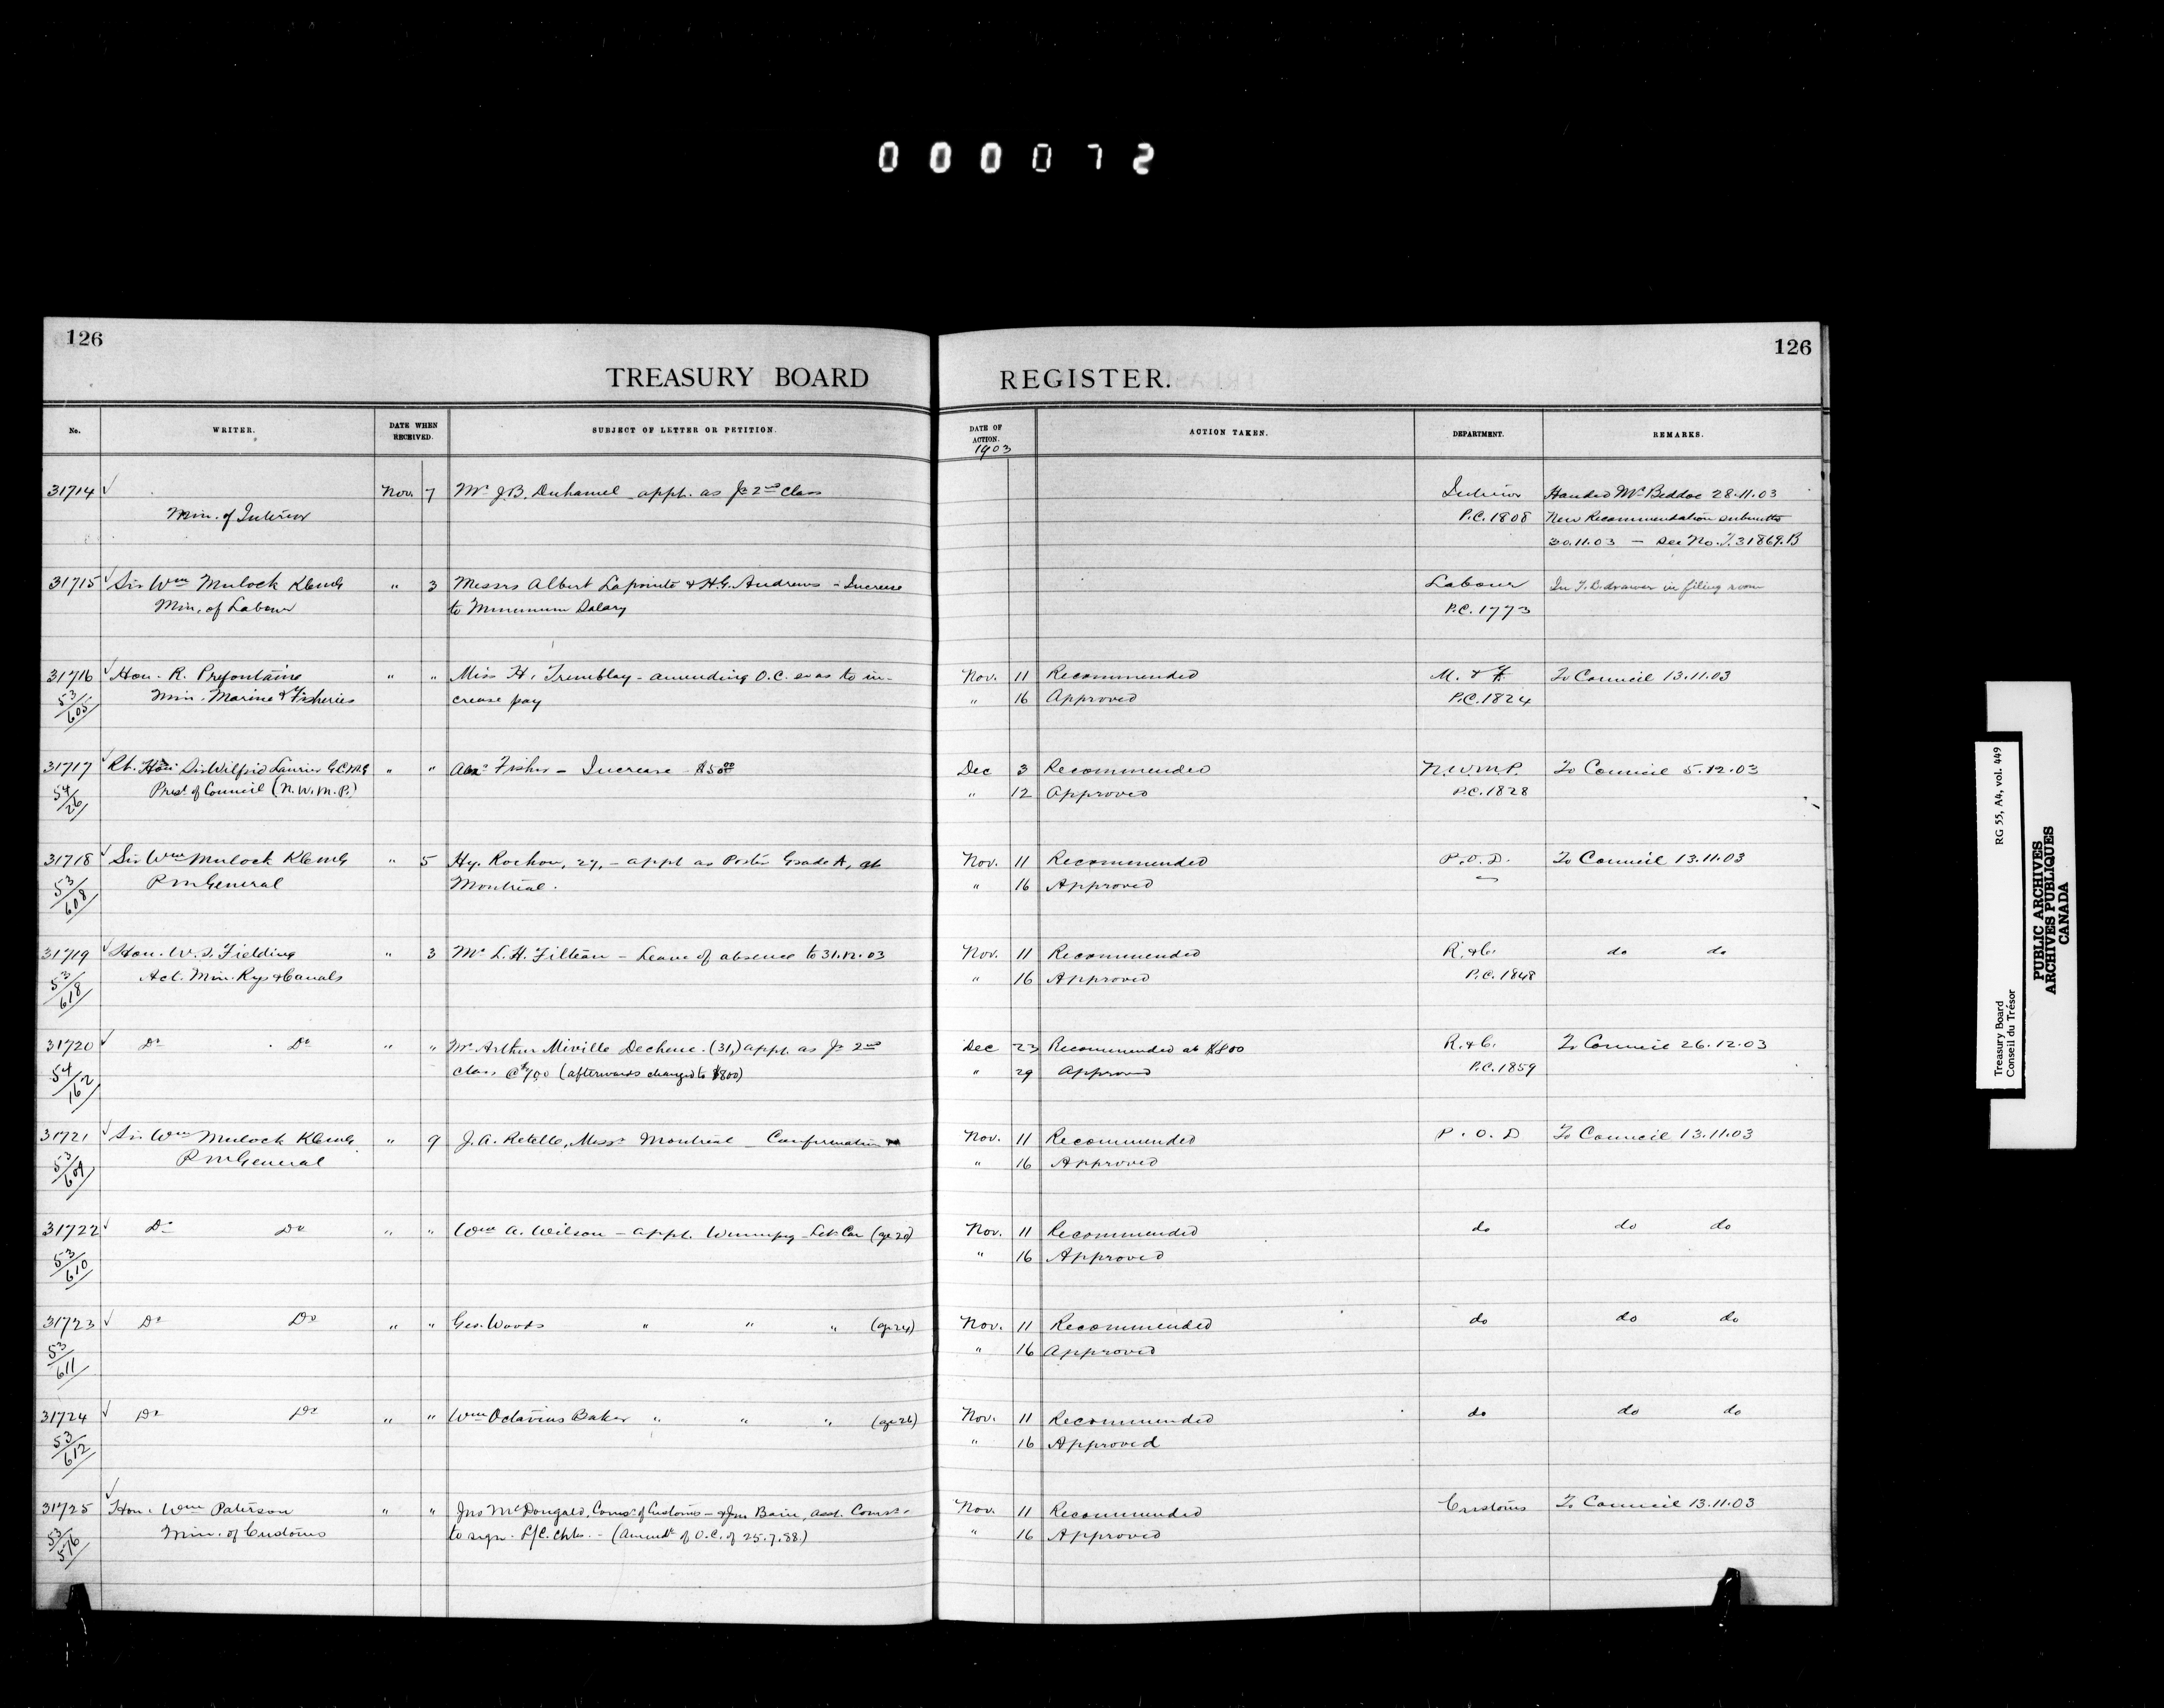 000072
126
126
TREASURY BOARD REGISTER.
No. WRITER. DATE WHEN RECEIVED. SUBJECT OF LETTER OR PETITION. DATE OF ACTION. 1903 ACTION TAKEN. DEPARTMENT. REMARKS.
31714 Nov. 7 Mr J.B. Duhamel appt. as Jr 2nd Class Interior Handed Mr Beddoe 28.11.03
Min. of Interior P.C. 1808 New Recommendation submitted
30.11.03 — See No. T. 31869.B
31715 Sir Wm Mulock KCMG " 3 Messrs Albert Lapointe & H.G. Andrews - Increase Labour In T.B. drawer in filing room
Min. of Labour to Minimum Salary P.C. 1773
31716 Hon. R. Prefontaine " " Miss H. Tremblay - amending O.C. so as to in- Nov. 11 Recommended M. & F. To Council 13.11.03
53/605 Min. Marine & Fisheries crease pay " 16 Approved P.C. 1824
31717 Rt. Hon Sir Wilfrid Laurier G.C.M.G " " Fisher - Increase - $50.00 Dec 3 Recommended N.W.M.P. To Council 5.12.03
54/26 Prest. of Council (N.W.M.P.) " 12 Approved P.C. 1828
31718 Sir Wm Mulock KCMG " 5 Hy. Rochon, 27, - appt as Porter Grade A, at Nov. 11 Recommended P.O.D. To Council 13.11.03
53/608 P M General Montreal. " 16 Approved
31719 Hon. W.S. Fielding " 3 Mr L.H. Filteau - Leave of absence to 31.12.03 Nov. 11 Recommended R. & C. do do
53/618 Act. Min. Rys & Canals " 16 Approved P.C. 1848
31720 Do Do " " Mr Arthur Miville Dechene (31,) appt. as Jr 2nd Dec 23 Recommended at $800 R. & C. To Council 26.12.03
54/162 class @ $700 (afterwards changed to $800) " 29 Approved P.C. 1859
31721 Sir Wm Mulock KCMG " 9 J.A. Messr Montreal Confirmation Nov. 11 Recommended P.O.D To Council 13.11.03
53/609 P M General " 16 Approved
31722 Do Do " " Wm A. Wilson - appt. Winnipeg Let Car (age 20) Nov. 11 Recommended do do do
53/610 " 16 Approved
31723 Do Do " " Geo. Woods " " " (age 24) Nov. 11 Recommended do do do
53/611 " 16 Approved
31724 Do Do " " Wm Octavius Baker " " " (age 26) Nov. 11 Recommended do do do
53/612 " 16 Approved
31725 Hon. Wm Paterson " " Jno McDougald, Comr of Customs - & Jno Bain, asst. Comr - Nov. 11 Recommended Customs To Council 13.11.03
53/576 Min. of Customs to sign L/C. chks. - (Amendt of O.C. of 25.7.88) " 16 Approved
Treasury Board RG 55, A4, vol. 449
Conseil du Trésor
PUBLIC ARCHIVES
ARCHIVES PUBLIQUES
CANADA